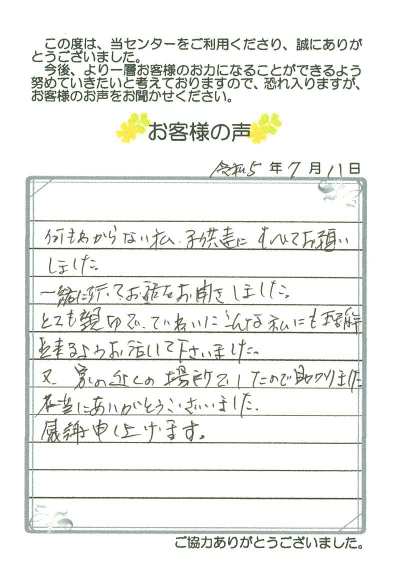 この度は、当センターをご利用くださり、誠にありが
とうございました。
今後、より一層お客様のお力になることができるよう
努めていきたいと考えておりますので、恐れ入りますが、
お客様のお声をお聞かせください。
お客様の声
令和5年7月11日
何もわからない私、子供達に すべてお願い
しました。
一緒に行ってお話をお聞きしました。
とても親切で、ていねいにこんな私にも理解
出来るようお話して下さいました。
又、家の近くの場所でしたので助かりました
本当にありがとうございました。
感謝申し上げます。
ご協力ありがとうございました。